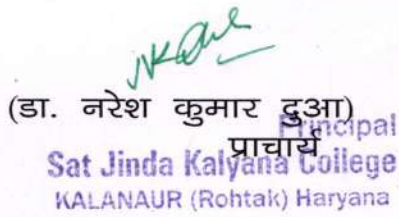 (डा. नरेश कुमार दुआ)
प्राचार्य
Principal
Sat Jinda Kalyana College
KALANAUR (Rohtak) Haryana